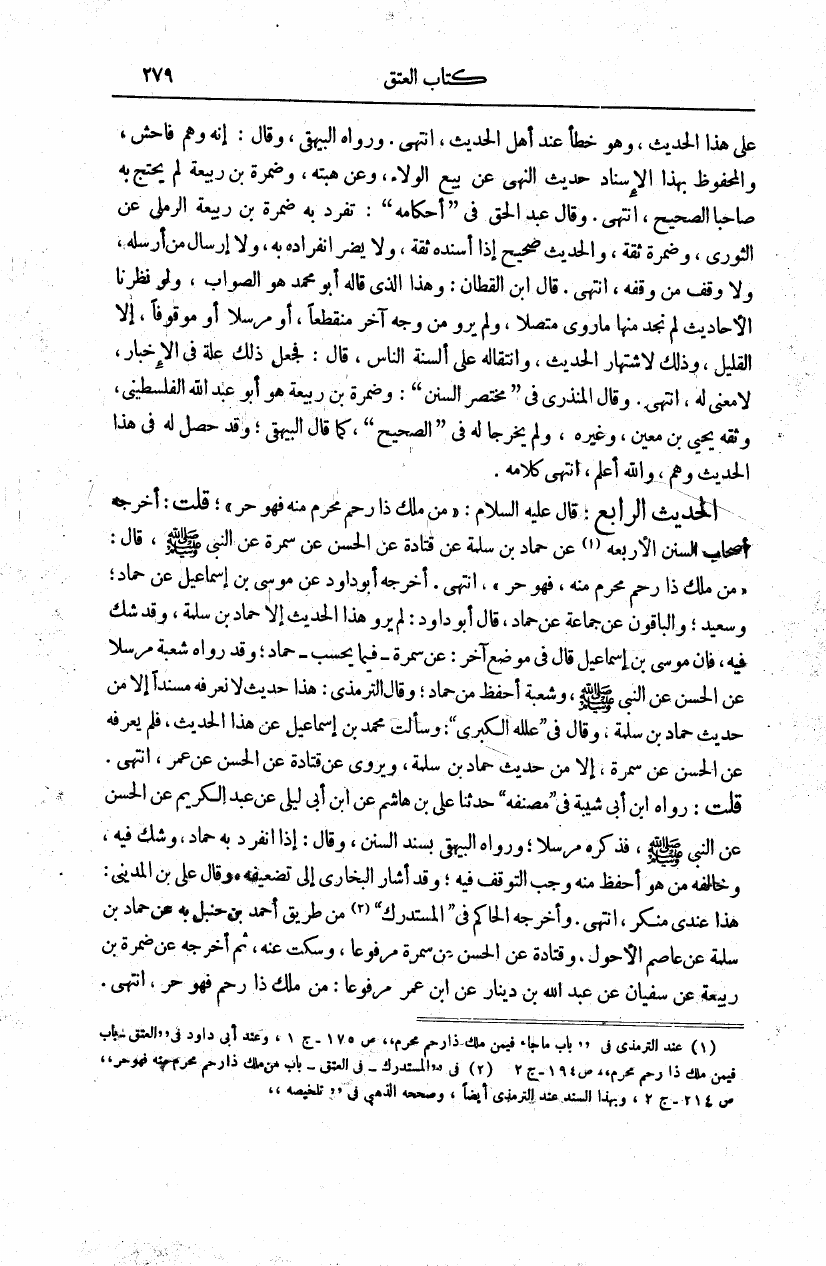 كتاب العتق ٢٧٩
على هذا الحديث ، وهو خطأ عند أهل الحديث ، انتهى . ورواه البيهقى ، وقال : إنه وهم فاحش ،
والمحفوظ بهذا الإسناد حديث النهى عن بيع الولاء ، وعن هبته ، وضمرة بن ربيعة لم يحتج به
صاحبا الصحيح ، انتهى . وقال عبد الحق فى "أحكامه" : تفرد به ضمرة بن ربيعة الرملى عن
الثورى ، وضمرة ثقة ، والحديث صحيح إذا أسنده ثقة ، ولا يضر انفراده به ، ولا إرسال من أرسله ،
ولا وقف من وقفه ، انتهى . قال ابن القطان : وهذا الذى قاله أبو محمد هو الصواب ، ولو نظرنا
الأحاديث لم نجد منها ماروى متصلا ، ولم يرو من وجه آخر منقطعاً ، أو مرسلا أو موقوفاً ، إلا
القليل ، وذلك لاشتهار الحديث ، وانتقاله على ألسنة الناس ، قال : فجعل ذلك علة فى الإخبار ،
لامعنى له ، انتهى . وقال المنذرى فى "مختصر السنن" : وضمرة بن ربيعة هو أبو عبد الله الفلسطينى ،
وثقه يحيى بن معين ، وغيره ، ولم يخرجا له فى "الصحيح" ، كما قال البيهقى ؛ وقد حصل له فى هذا
الحديث وهم ، والله أعلم ، انتهى كلامه .
الحديث الرابع : قال عليه السلام : « من ملك ذا رحم محرم منه فهو حر » ؛ قلت : أخرجه
أصحاب السنن الأربعه (١) عن حماد بن سلمة عن قتادة عن الحسن عن سمرة عن النبى ﷺ ، قال :
« من ملك ذا رحم محرم منه ، فهو حر » ، انتهى . أخرجه أبوداود عن موسى بن إسماعيل عن حماد ؛
وسعيد ؛ والباقون عن جماعة عن حماد ، قال أبو داود : لم يرو هذا الحديث إلا حماد بن سلمة ، وقد شك
فيه ، فان موسى بن إسماعيل قال فى موضع آخر : عن سمرة ـ فيما يحسب ـ حماد ؛ وقد رواه شعبة مرسلا
عن الحسن عن النبى ﷺ ، وشعبة أحفظ من حماد ؛ وقال الترمذى : هذا حديث لا نعرفه مسنداً إلا من
حديث حماد بن سلمة ، وقال فى "علله الكبرى" : وسألت محمد بن إسماعيل عن هذا الحديث ، فلم يعرفه
عن الحسن عن سمرة ، إلا من حديث حماد بن سلمة ، ويروى عن قتادة عن الحسن عن عمر ، انتهى .
قلت : رواه ابن أبى شيبة فى "مصنفه" حدثنا على بن هاشم عن ابن أبى ليلى عن عبد الكريم عن الحسن
عن النبى ﷺ ، فذكره مرسلا ؛ ورواه البيهقى بسند السنن ، وقال : إذا انفرد به حماد ، وشك فيه ،
وخالفه من هو أحفظ منه وجب التوقف فيه ؛ وقد أشار البخارى إلى تضعيفه ، وقال على بن المدينى :
هذا عندى منكر ، انتهى . وأخرجه الحاكم فى "المستدرك" (٢) من طريق أحمد بن حنبل به عن حماد بن
سلمة عن عاصم الأحول . وقتادة عن الحسن عن سمرة مرفوعا ، وسكت عنه ، ثم أخرجه عن ضمرة بن
ربيعة عن سفيان عن عبد الله بن دينار عن ابن عمر مرفوعا : من ملك ذا رحم فهو حر ، انتهى .
(١) عند الترمذى فى ,, باب ماجاء فيمن ملك ذارحم محرم ,, ص ١٧٥ ـ ج ١ ، وعند أبى داود فى ,, العتق ـ باب
فيمن ملك ذا رحم محرم ,, ص ١٩٤ ـ ج ٢ (٢) فى ,, المستدرك ـ فى العتق ـ باب من ملك ذا رحم محرم منه فهو حر ,,
ص ٢١٤ ـ ج ٢ ، وبهذا السند عند الترمذى أيضاً ، وصححه الذهبى فى ,, تلخيصه ,,